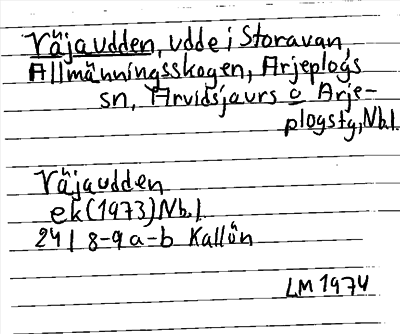 Väjaudden, udde i Storavan,
Allmänningsskogen, Arjeplogs
sn, Arvidsjaurs o Arje-
plogs tg, Nb.l.
Väjaudden
ek (1973) Nb.l.
24I 8-9 a-b Kallön
LM 1974